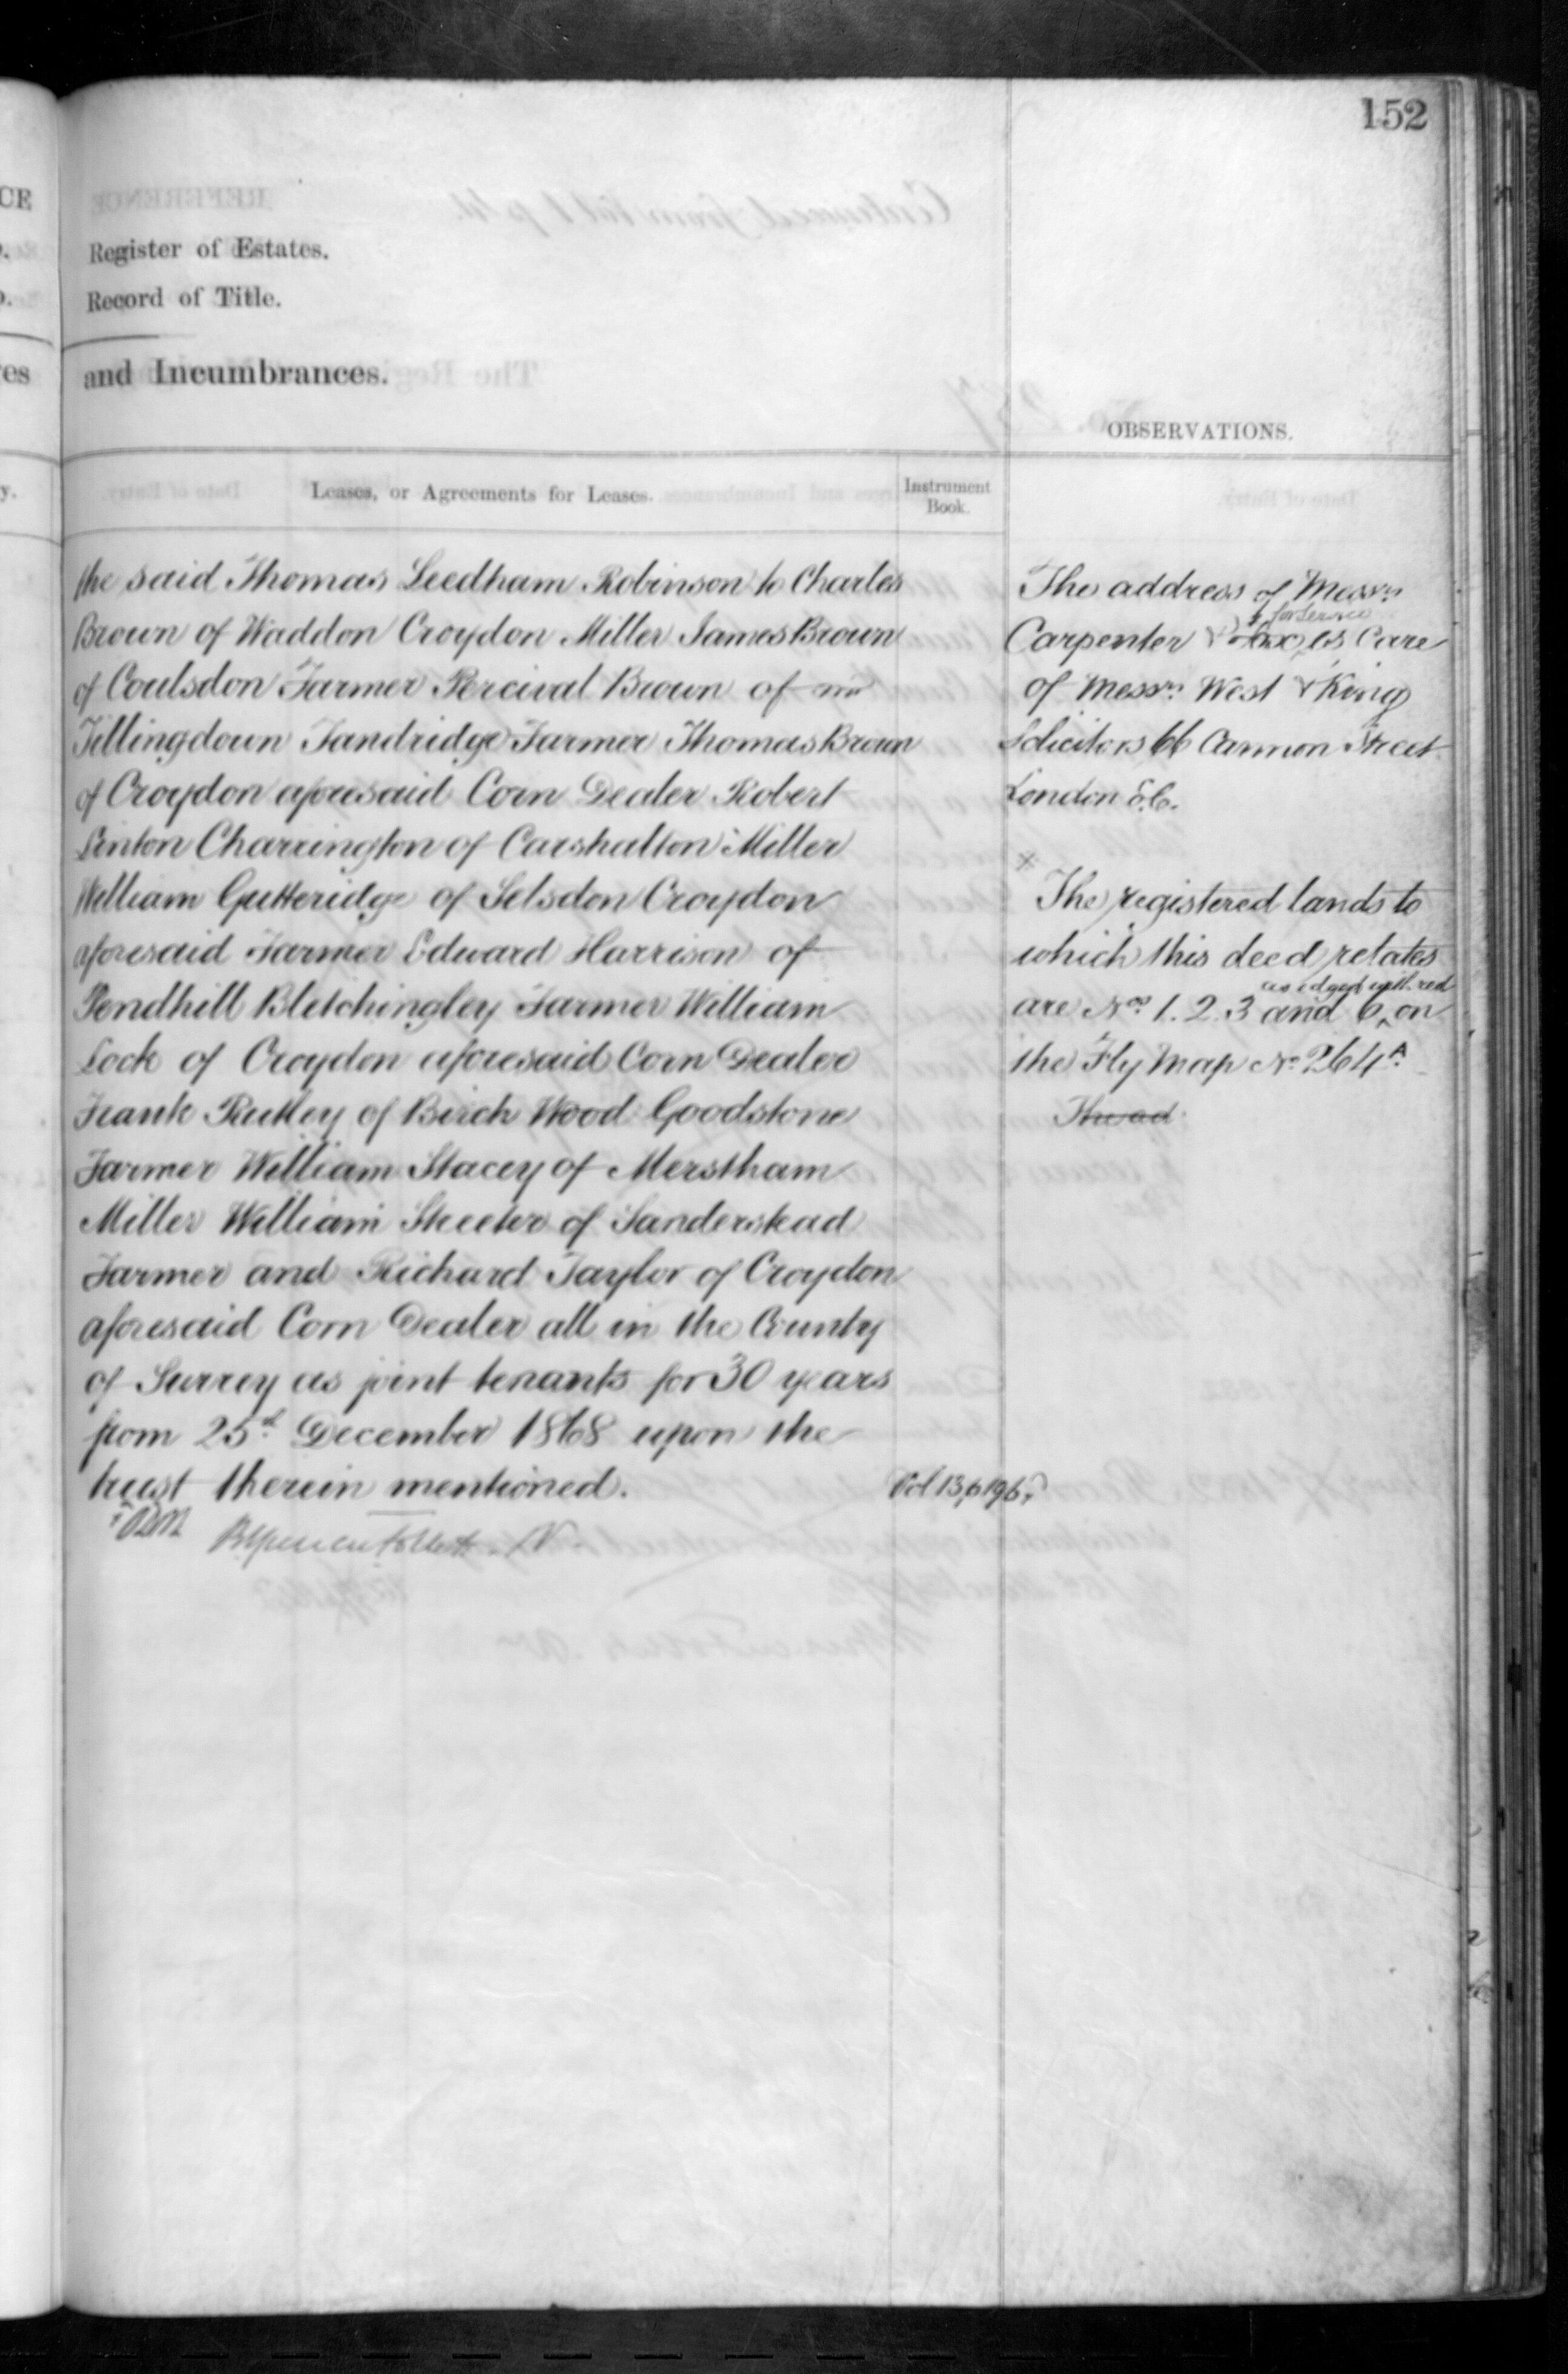 152
Register of Estates.
Record of Title.
and Incumbrances.
OBSERVATIONS.
Leases, or Agreements for Leases.
Instrument
Book.
the said Thomas Leedham Robinson to Charles
Brown of Waddon Croydon Miller James Brown
of Coulsdon Farmer Percival Brown of
Tillingdown Tandridge Farmer Thomas Brown
of Croydon aforesaid Corn Dealer Robert
Linton Charrington of Carshalton Miller
William Gutteridge of Selsdon Croydon
aforesaid Farmer Edward Harrison of
Pendhill Bletchingley Farmer William
Lock of Croydon aforesaid Corn Dealer
Frank Rutley of Birch Wood Goodstone
Farmer William Stacey of Merstham
Miller William Skeeter of Sanderstead
Farmer and Richard Taylor of Croydon
aforesaid Corn Dealer all in the County
of Surrey as joint tenants for 30 years
from 25th December 1868 upon the
trust therein mentioned.
Vol 13 p 196.
The address of Messrs
for service
Carpenter & is Care
of Messrs West & King
Solicitors 66 Cannon Street
London E.C.
x
The registered lands to
which this deed relates
as edged with red
are Nos 1. 2. 3 and 6 ^ on
the Fly Map No 264A